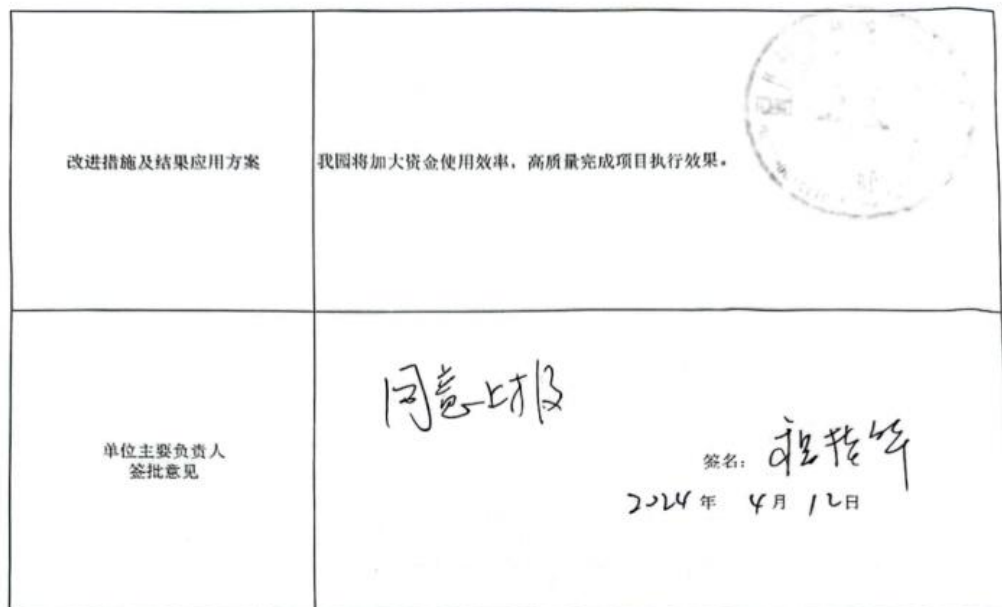 改进措施及结果应用方案
我园将加大资金使用效率，高质量完成项目执行效果。
单位主要负责人
签批意见
同意上报
签名：
2024年 4月12日